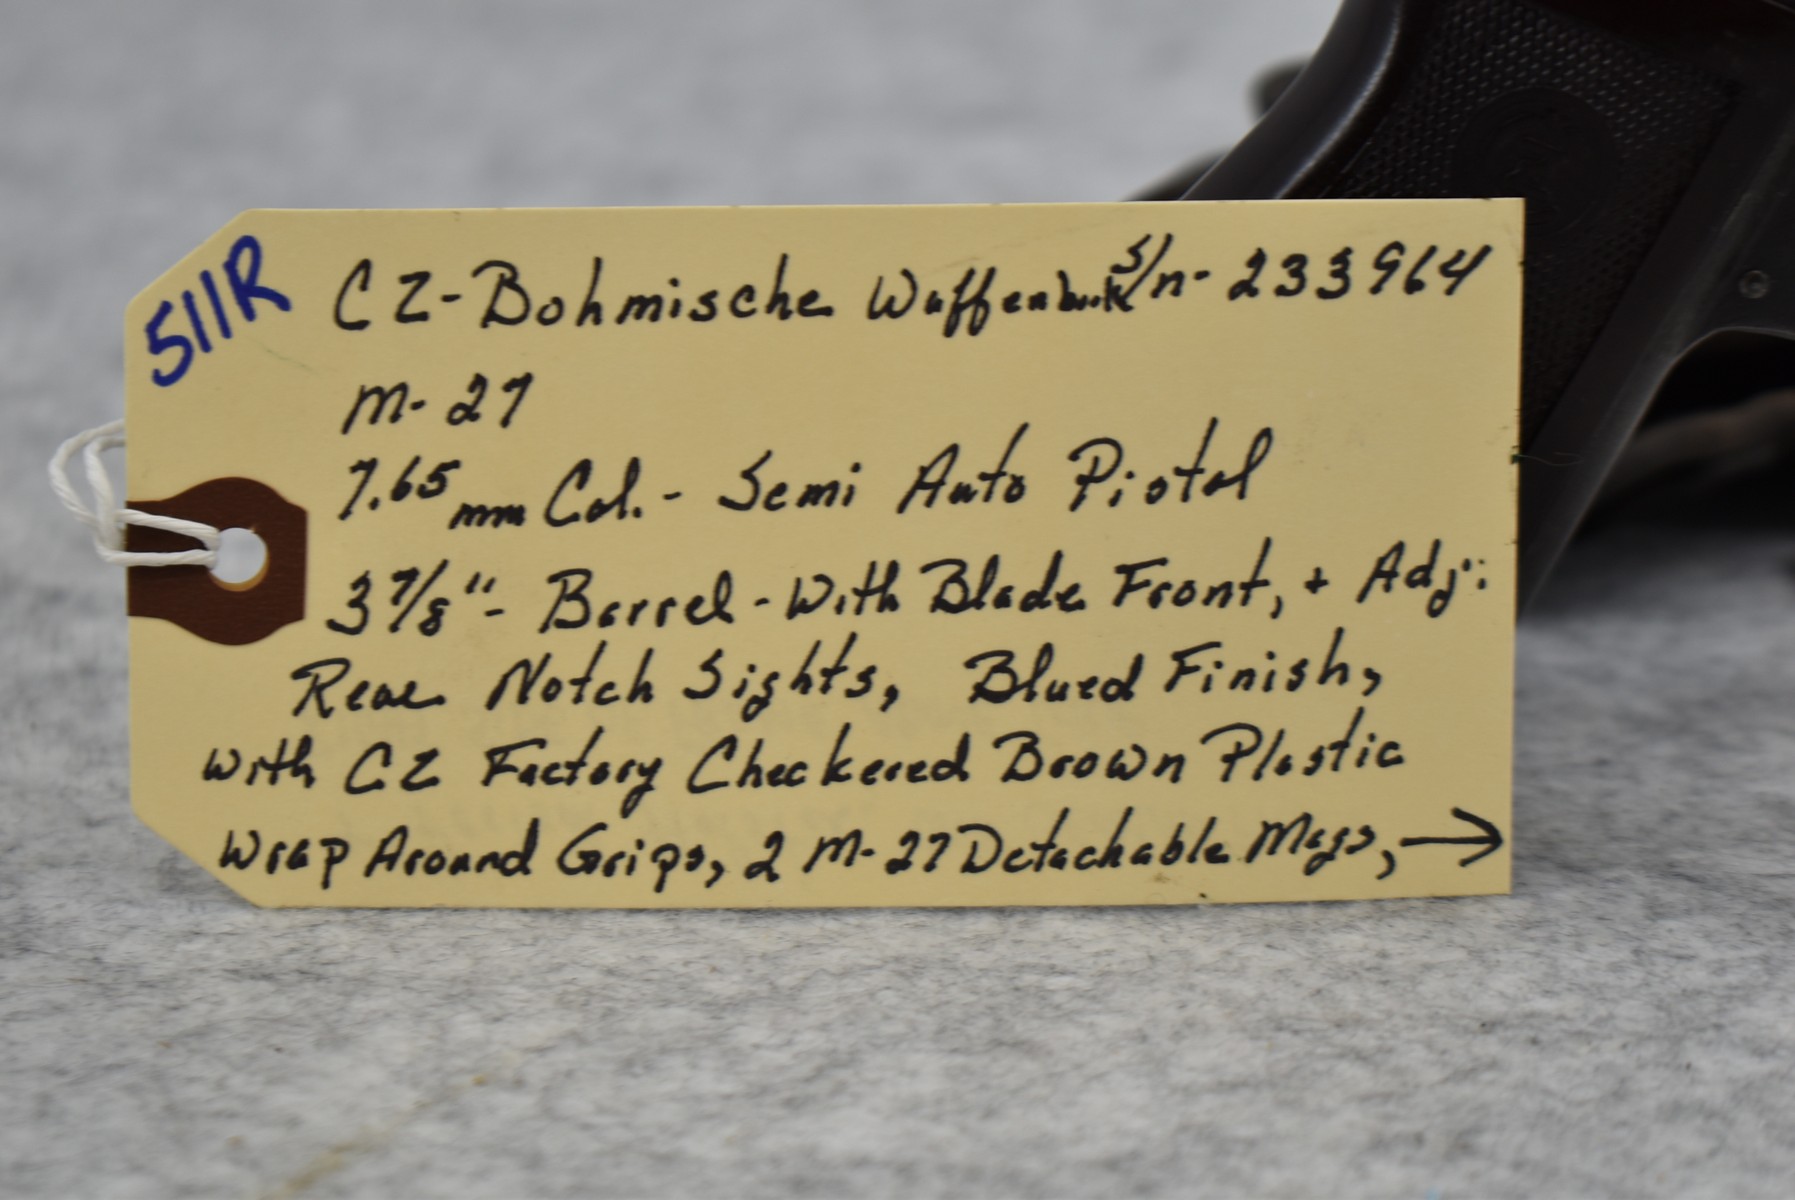 511R
CZ-Bohmische Waffenwerk S/n- 233964
M-27
7.65mm Cal.- Semi Auto Pistol
3 7/8"- Barrel - With Blade Front, + Adj:
Rear Notch Sights, Blued Finish,
with CZ Factory Checkered Brown Plastic
Wrap Around Grips, 2 M-27 Detachable Mags, →